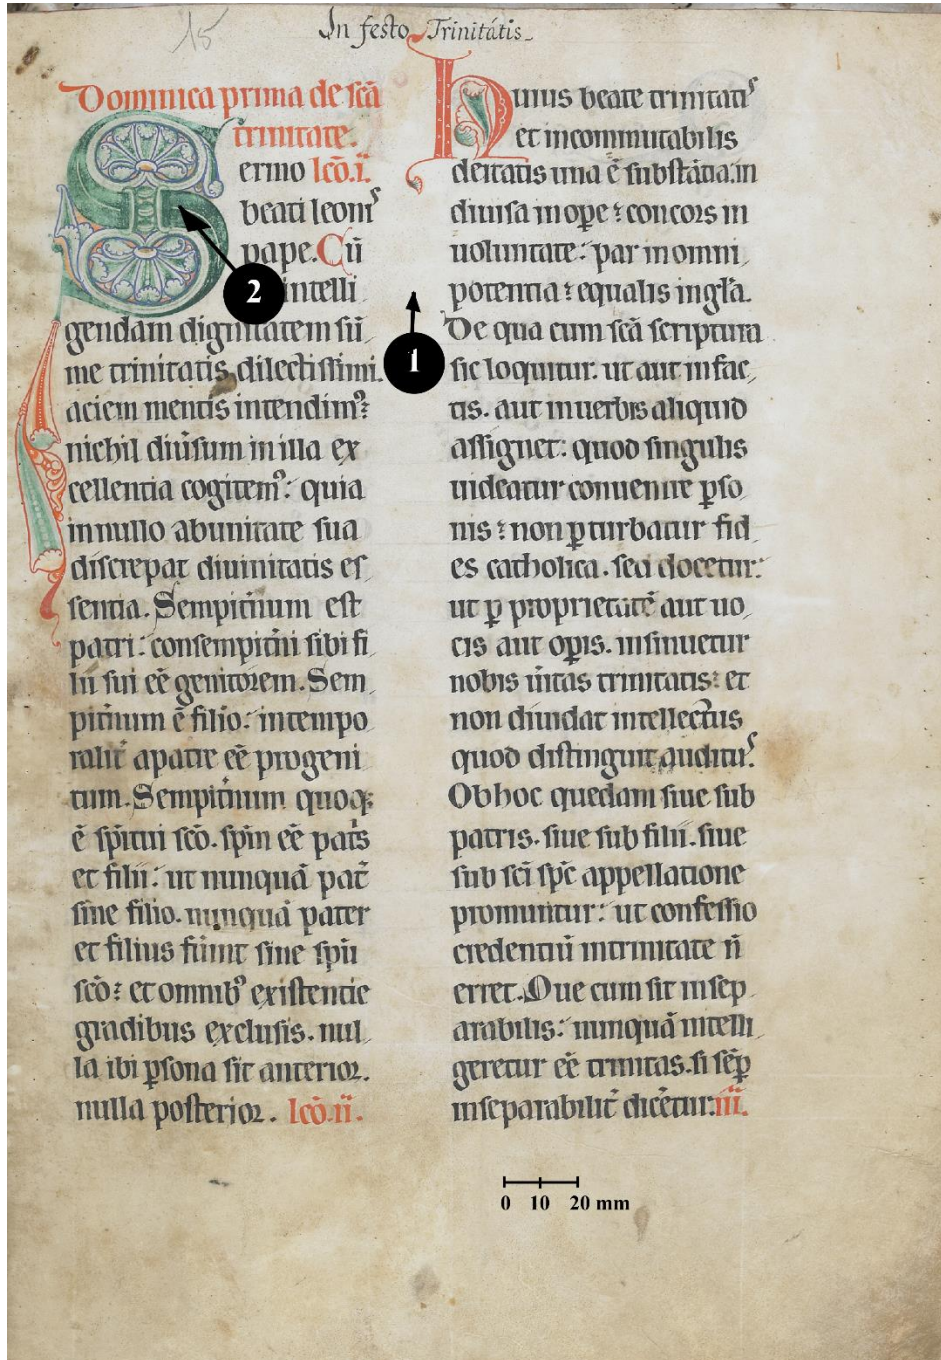 15
In festo Trinitátis
Dominica prima de sc̄a
trinitate.
Sermo lcō.i.
beati leonis
pape. Cū
intelli
gendam dignitatem sū
me trinitatis dilectissimi.
aciem mentis intendim⁹:
nichil diūsum in illa ex
cellentia cogitem⁹: quia
in nullo ab unitate sua
discrepat diuinitatis es
sentia. Sempit̄num est
patri: consempit̄ni sibi fi
lii sui eē genitorem. Sem
pit̄num ē filio: intempo
ralit̄ a patre eē progeni
tum. Sempit̄num quoq;
ē sp̄itui scō. sp̄m eē pat̄s
et filii: ut nunquā pat̄
sine filio. nunquā pater
et filius fūint sine sp̄u
scō: et omnib⁹ existentie
gradibus exclusis. nul
la ibi p̱sona sit anterior.
nulla posterior. lcō.ii.
Huius beate trinitatis
et incommutabilis
deitatis una ē substātia: in
diuisa in ope ⁊ concors in
uoluntate: par in omni
potentia ⁊ equalis in gl̄a.
De qua cum scā scriptura
sic loquitur. ut aut in fac
tis. aut in uerbis aliquid
assignet: quod singulis
uideatur conuenire p̱so
nis: non p̱turbatur fid
es catholica. sed docetur:
ut p̱ proprietatē aut uo
cis aut op̱is. insinuetur
nobis ūitas trinitatis: et
non diuidat intellectus
quod distinguit auditus.
Ob hoc quedam siue sub
patris. siue sub filii. siue
sub sc̄i sp̄c appellatione
promuntur: ut confessio
credentiū in trinitate n̄
erret. Que cum sit insep
arabilis: nunquā intelli
geretur eē trinitas. si sēp̱
inseparabilit̄ dicēetur. iii.
2
1
0 10 20 mm